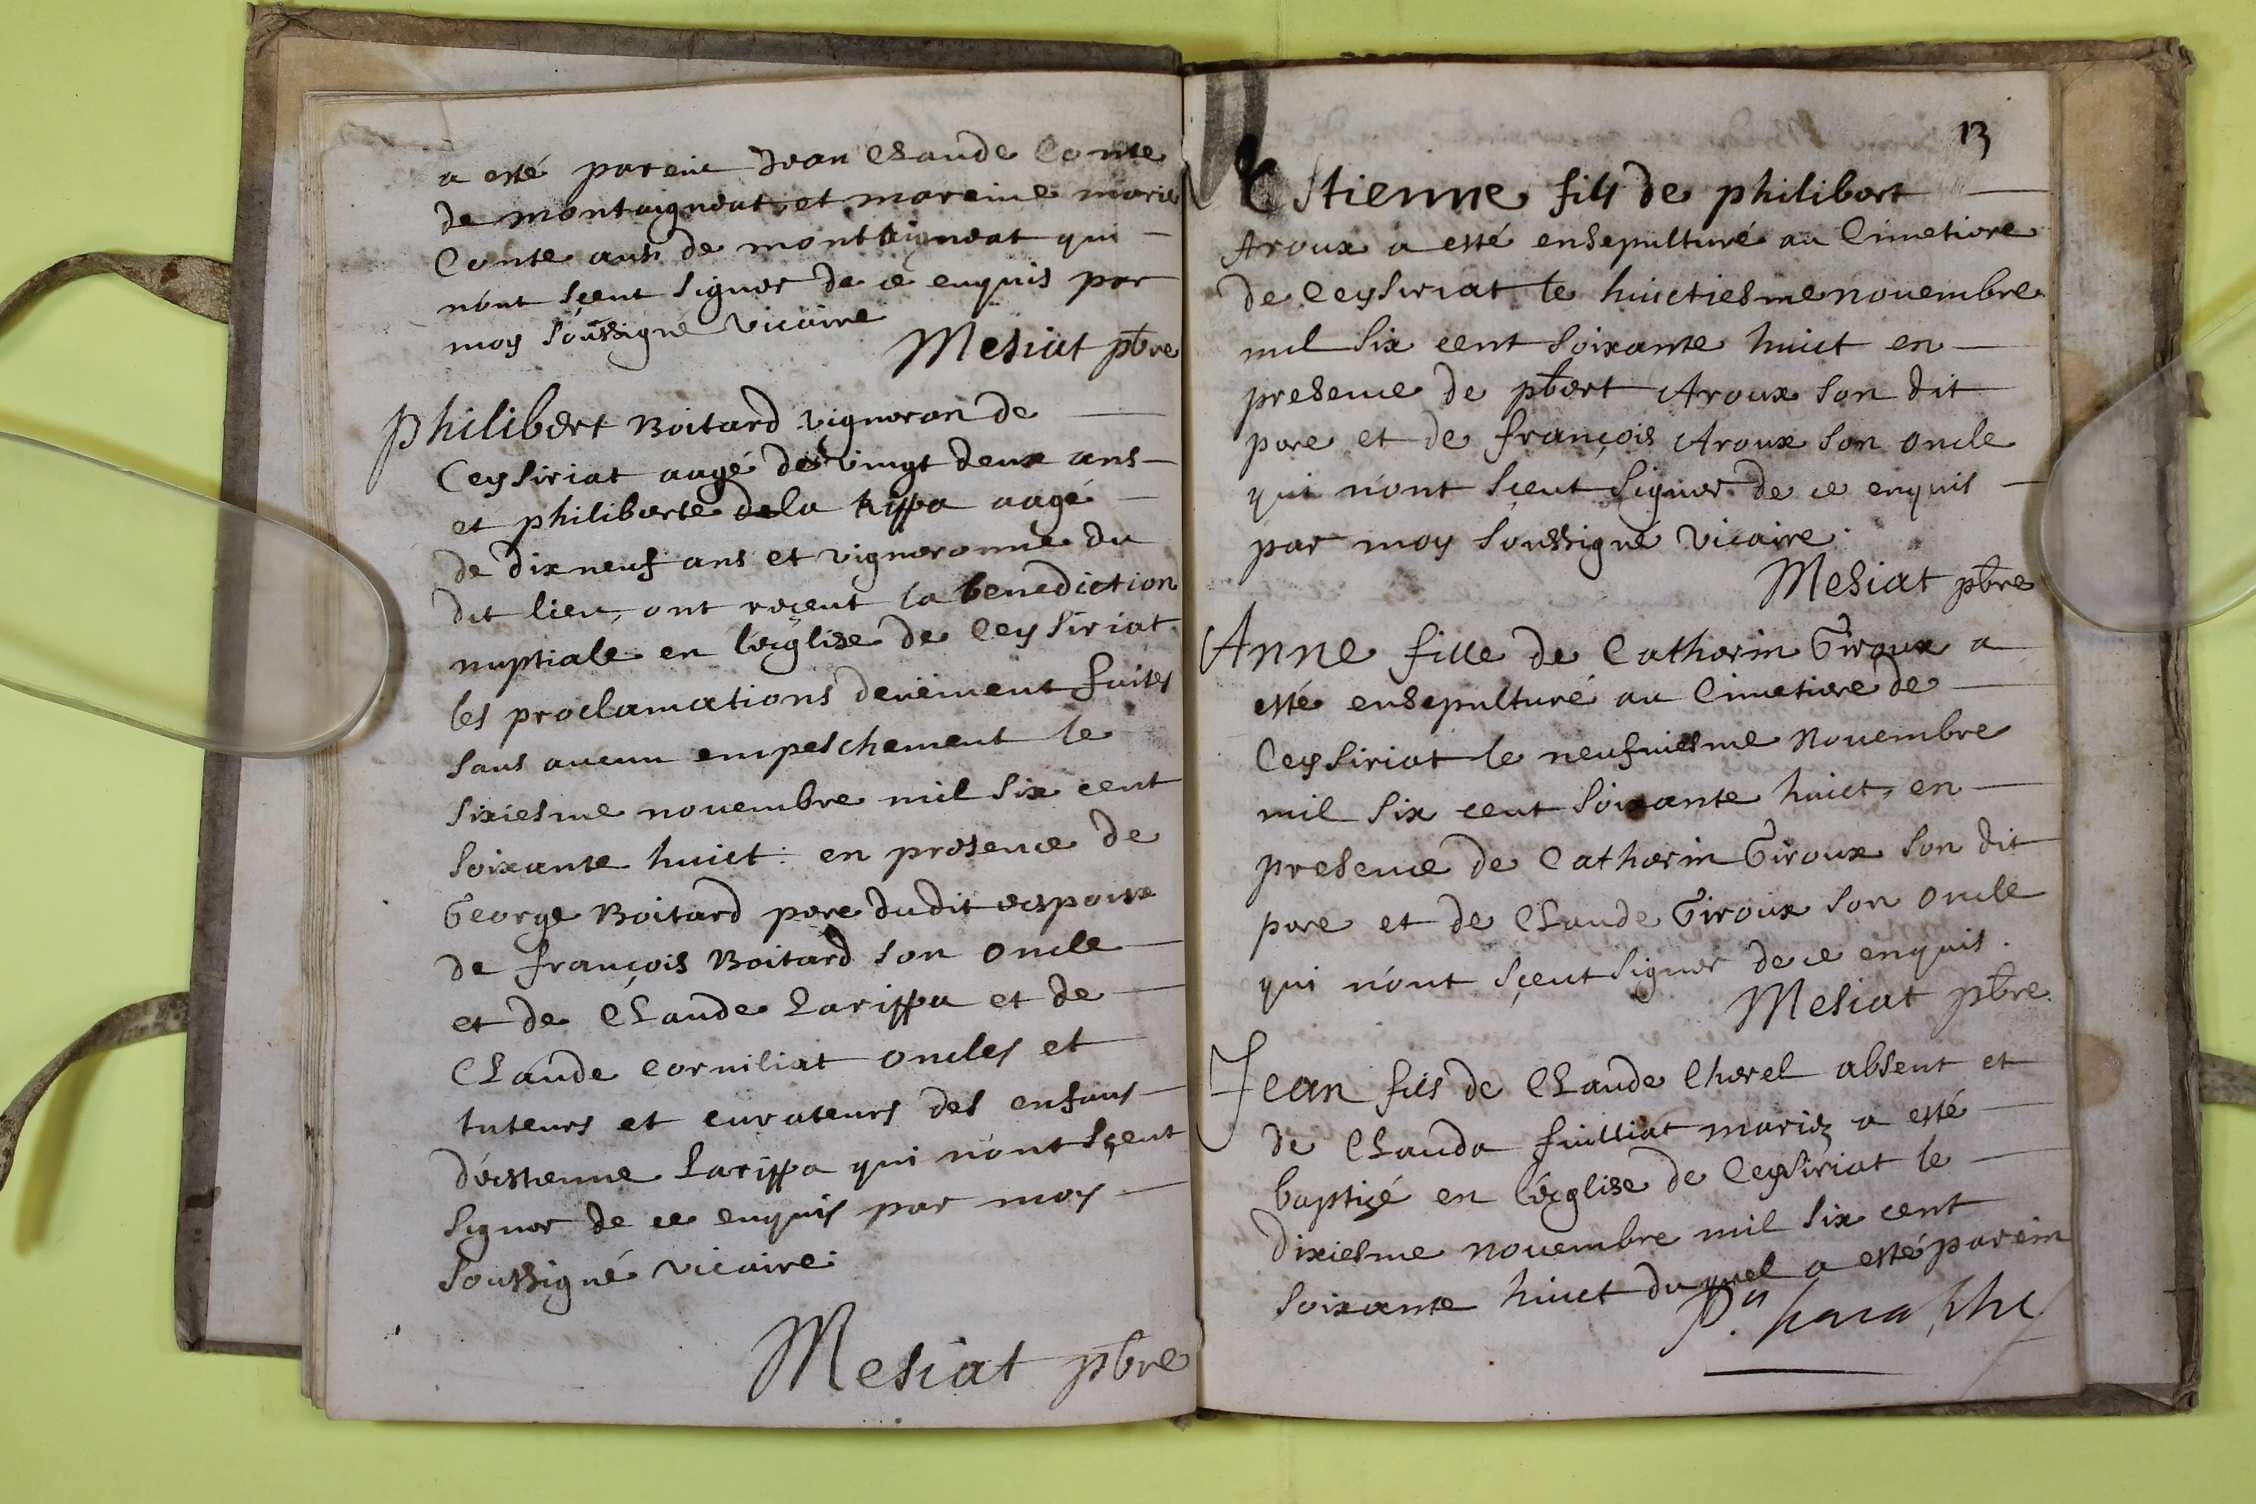 a esté parein Jean Claude Conte
de montaigneat et mareine marie
Conte aussi de montaigneat qui
n'ont sçeut signer de ce enquis par
moy soussigné vicaire
Mesiat pbre
Philibert Boitard vigneron de
Ceysiriat aagé de vingt deux ans
et philiberte de la Rippa aagé
de dixneuf ans et vigneronne du
dit lieu, ont reçeut la benediction
nuptiale en l'ecglise de Ceysiriat
les proclamations deuëment faites
sans aucun empeschement le
sixiesme nouembre mil six cent
soixante huict : en presence de
George Boitard pere dudit espoux
de françois Boitard son oncle
et de Claude Larippa et de
Claude Corniliat oncles et
tuteurs et curateurs des enfans
d'estienne Larippa qui n'ont sçeut
signer de ce enquis par moy
soussigné vicaire.
Mesiat pbre
13
Estienne fils de philibert
Aroux a esté ensepulturé au Cimetiere
de Ceysiriat le huictiesme nouembre
mil six cent soixante huict en
presence de pbert Aroux son dit
pere et de françois Aroux son oncle
qui n'ont sçeut signer de ce enquis
par moy soussigné vicaire.
Mesiat pbre
Anne fille de Catherin Giroux a
esté ensepulturé au Cimetiere de
Ceysiriat le neufuiesme Nouembre
mil six cent soixante huict, en
presence de Catherin Giroux son dit
pere et de Claude Giroux son oncle
qui n'ont sçeut signer de ce enquis.
Mesiat pbre.
Jean fils de Claude Cherel absent et
de Clauda fuilliat mariéz a esté
baptizé en l'ecglise de Ceysiriat le
dixiesme nouembre mil six cent
soixante huict duquel a esté parein